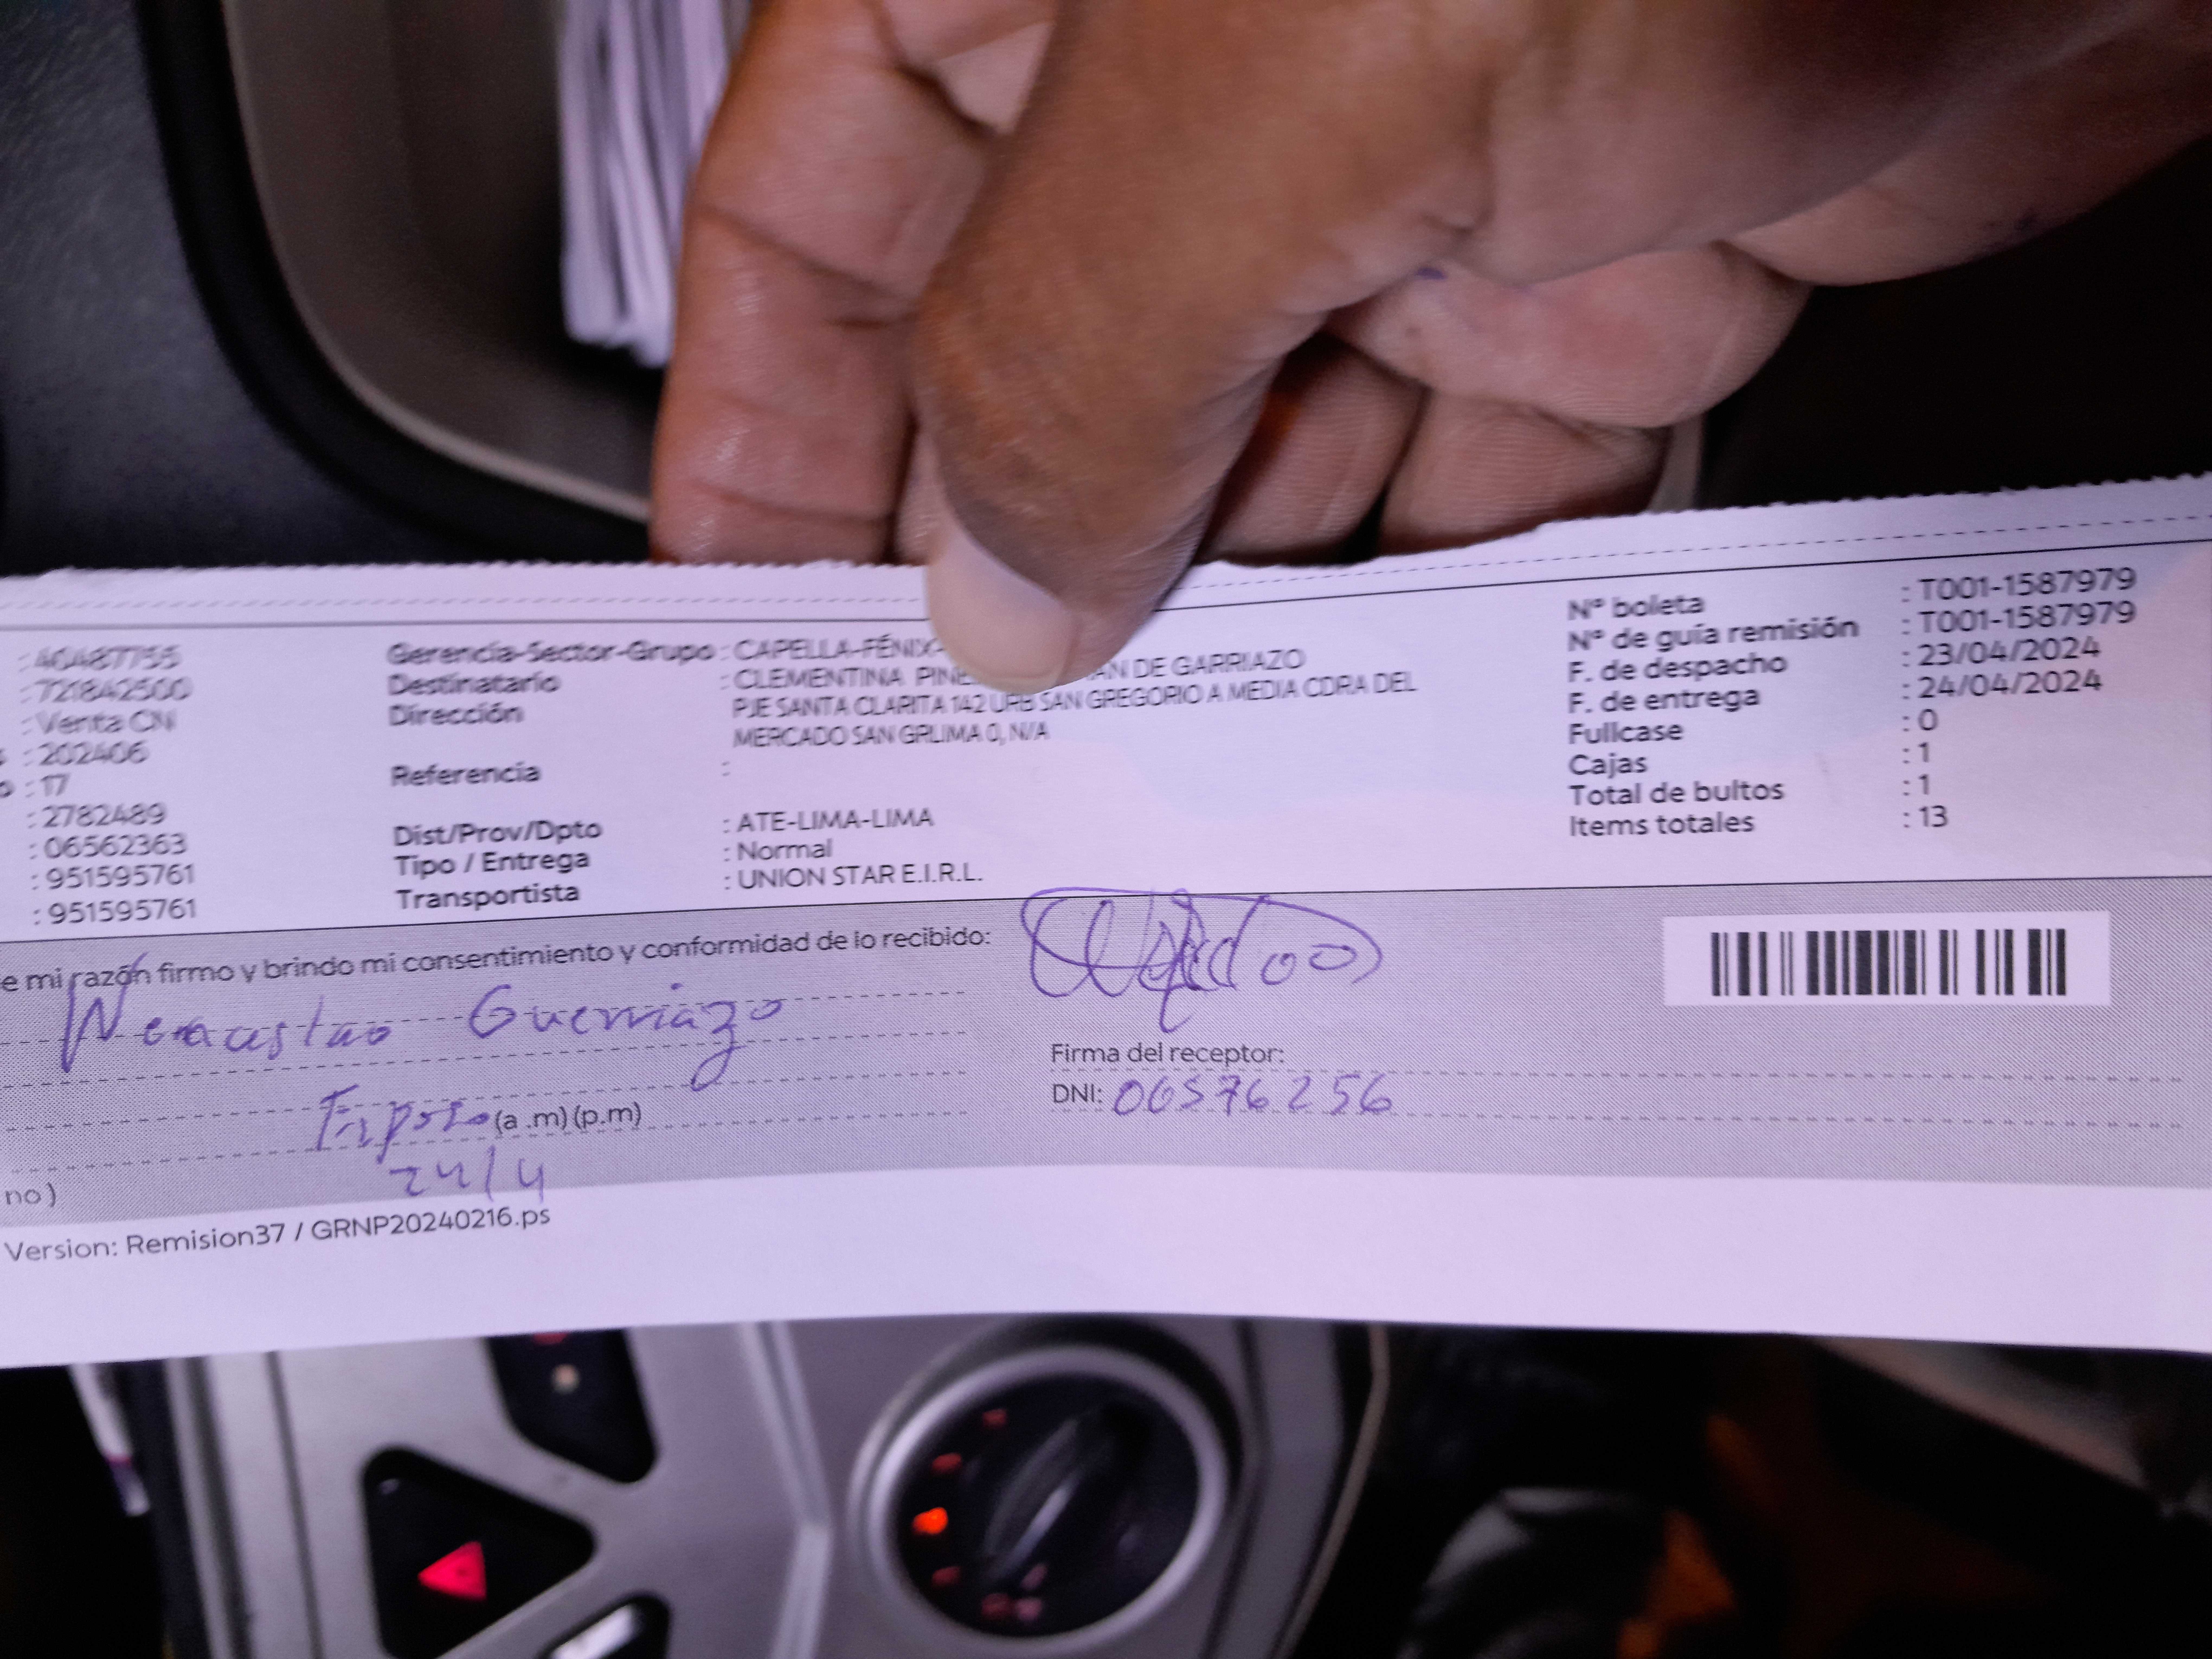 : 40487755
: 721842500
: Venta CN
: 202406
: 17
: 2782489
: 06562363
: 951595761
: 951595761
Gerencia-Sector-Grupo : CAPELLA-FÉNIX-
Destinatario : CLEMENTINA PINE AN DE GARRIAZO
Dirección : PJE SANTA CLARITA 142 URB SAN GREGORIO A MEDIA CDRA DEL
MERCADO SAN GRLIMA 0, N/A
Referencia :
Dist/Prov/Dpto : ATE-LIMA-LIMA
Tipo / Entrega : Normal
Transportista : UNION STAR E.I.R.L.
Nº boleta : T001-1587979
Nº de guía remisión : T001-1587979
F. de despacho : 23/04/2024
F. de entrega : 24/04/2024
Fullcase : 0
Cajas : 1
Total de bultos : 1
Items totales : 13
e mi razón firmo y brindo mi consentimiento y conformidad de lo recibido:
Firma del receptor:
DNI: 06576256
(a .m) (p.m)
24/4
no)
Version: Remision37 / GRNP20240216.ps